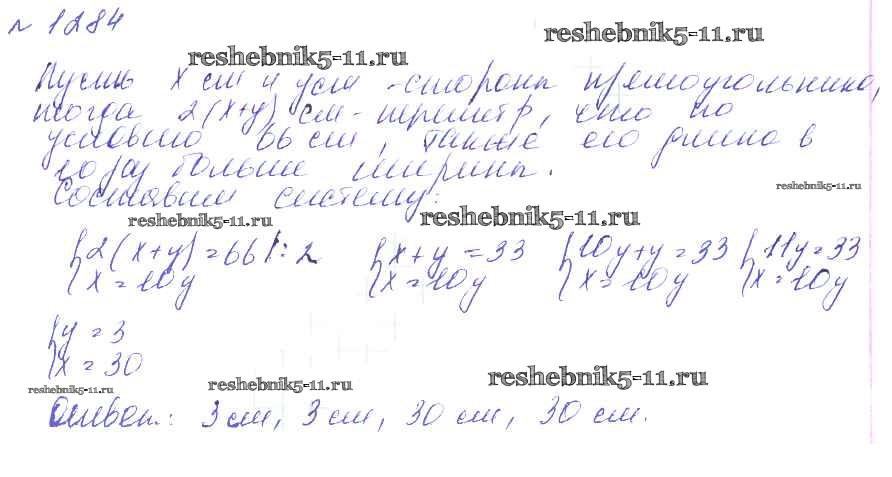 № 1284
reshebnik5-11.ru
reshebnik5-11.ru
Пусть x см и y см - стороны прямоугольника,
тогда 2(x+y) см - периметр, что по
условию 66 см, также его длина в
10 раз больше ширины.
reshebnik5-11.ru
Составим систему:
reshebnik5-11.ru
reshebnik5-11.ru
{2(x+y)=66 |:2 {x+y=33 {10y+y=33 {11y=33
{x=10y {x=10y {x=10y {x=10y
{y=3
{x=30
reshebnik5-11.ru
reshebnik5-11.ru
reshebnik5-11.ru
Ответ: 3 см, 3 см, 30 см, 30 см.